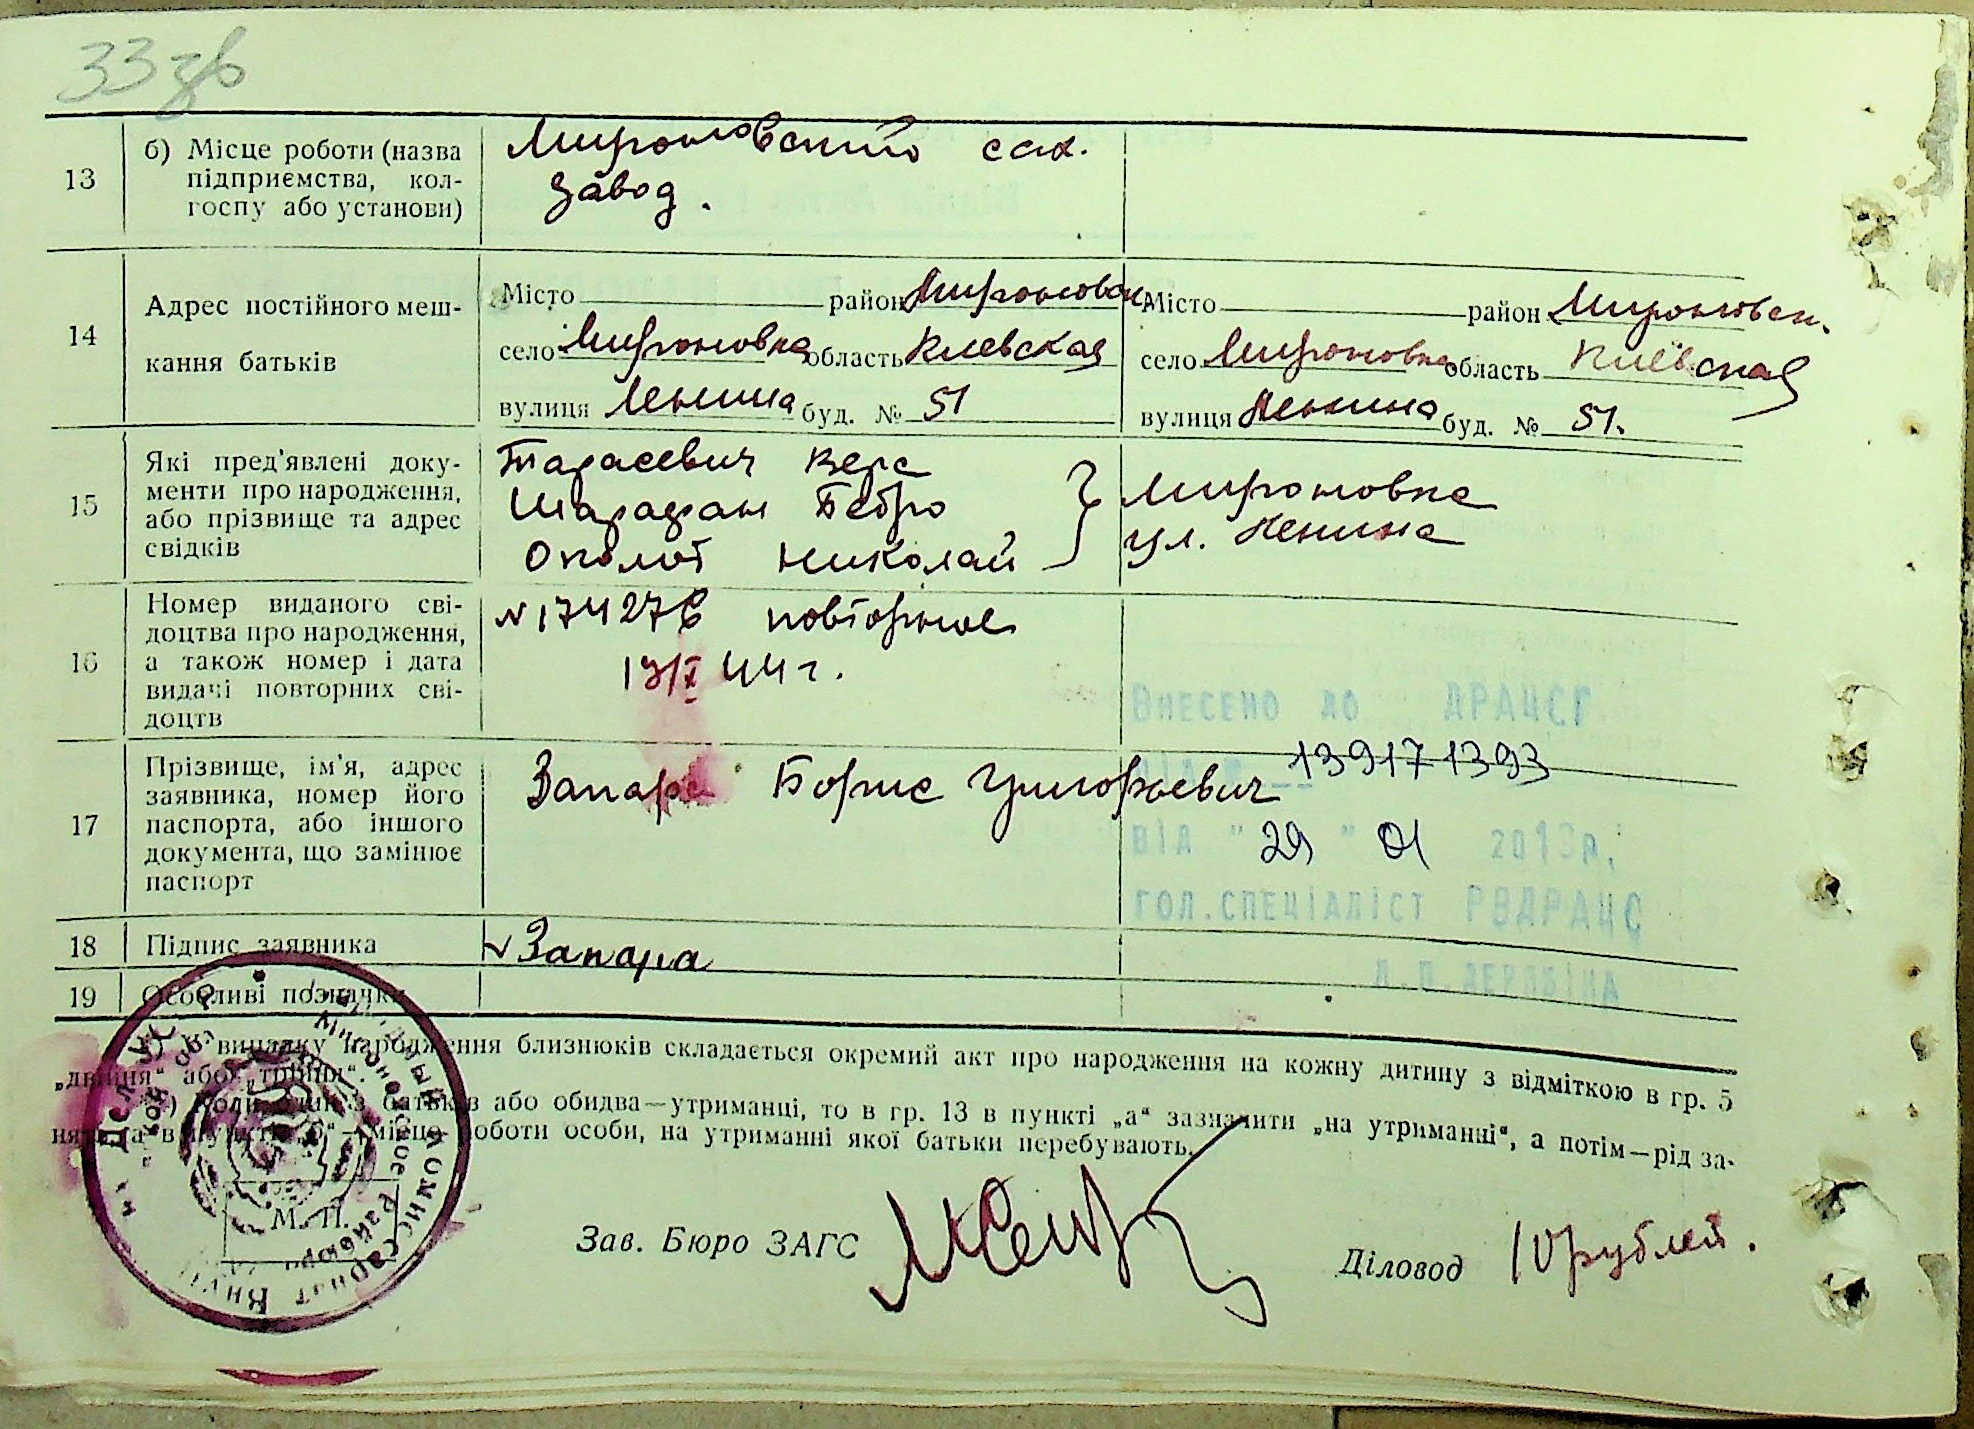 33 зв
13
б) Місце роботи (назва
підприємства, кол-
госпу або установи)
Мироновский сах.
завод.
14
Адрес постійного меш-
кання батьків
Місто район Мироновск.
село Мироновка область Киевская
вулиця Ленина буд. № 51
Місто район Мироновск.
село Мироновка область Киевская
вулиця Ленина буд. № 51.
15
Які пред'явлені доку-
менти про народження,
або прізвище та адрес
свідків
Тарасевич Вера
Шарафан
Николай
Мироновка
ул. Ленина
16
Номер виданого сві-
доцтва про народження,
а також номер і дата
видачі повторних сві-
доцтв
N 174276 повторное
44 г.
Внесено до ДРАЦСГ
13917 1393
від " 29 " 01 2013р.
гол.спеціаліст РВДРАЦС
17
Прізвище, ім'я, адрес
заявника, номер його
паспорта, або іншого
документа, що замінює
паспорт
Запара Борис Григорьевич
18
Підпис заявника
Запара
19
Особливі позначки
випадку народження близнюків складається окремий акт про народження на кожну дитину з відміткою в гр. 5
„двійня“ або „трійня“.
батьків або обидва—утриманці, то в гр. 13 в пункті „а“ зазначити „на утриманні“, а потім—рід за-
місце роботи особи, на утриманні якої батьки перебувають.
М. П.
Зав. Бюро ЗАГС
Діловод 10 рублей.